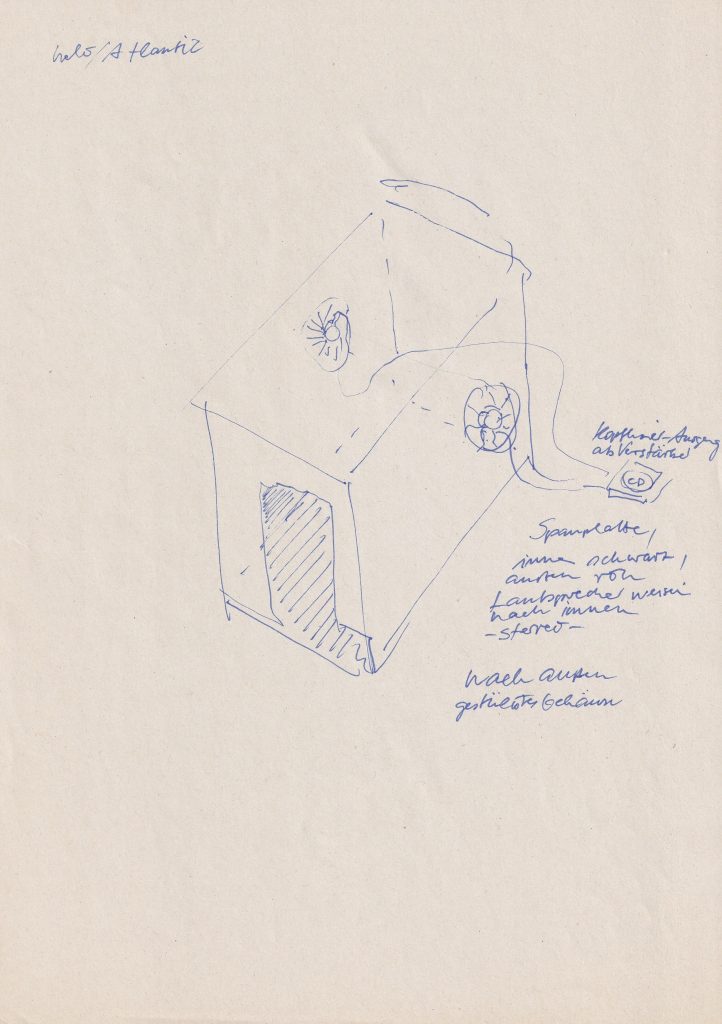 Halo/Atlantic
Kopfhörer-Ausgang
ab Verstärker
CD
Spanplatte,
innen schwarz,
außen roh
Lautsprecher weisen
nach innen
-stereo-
nach außen
gestülptes Gehäuse